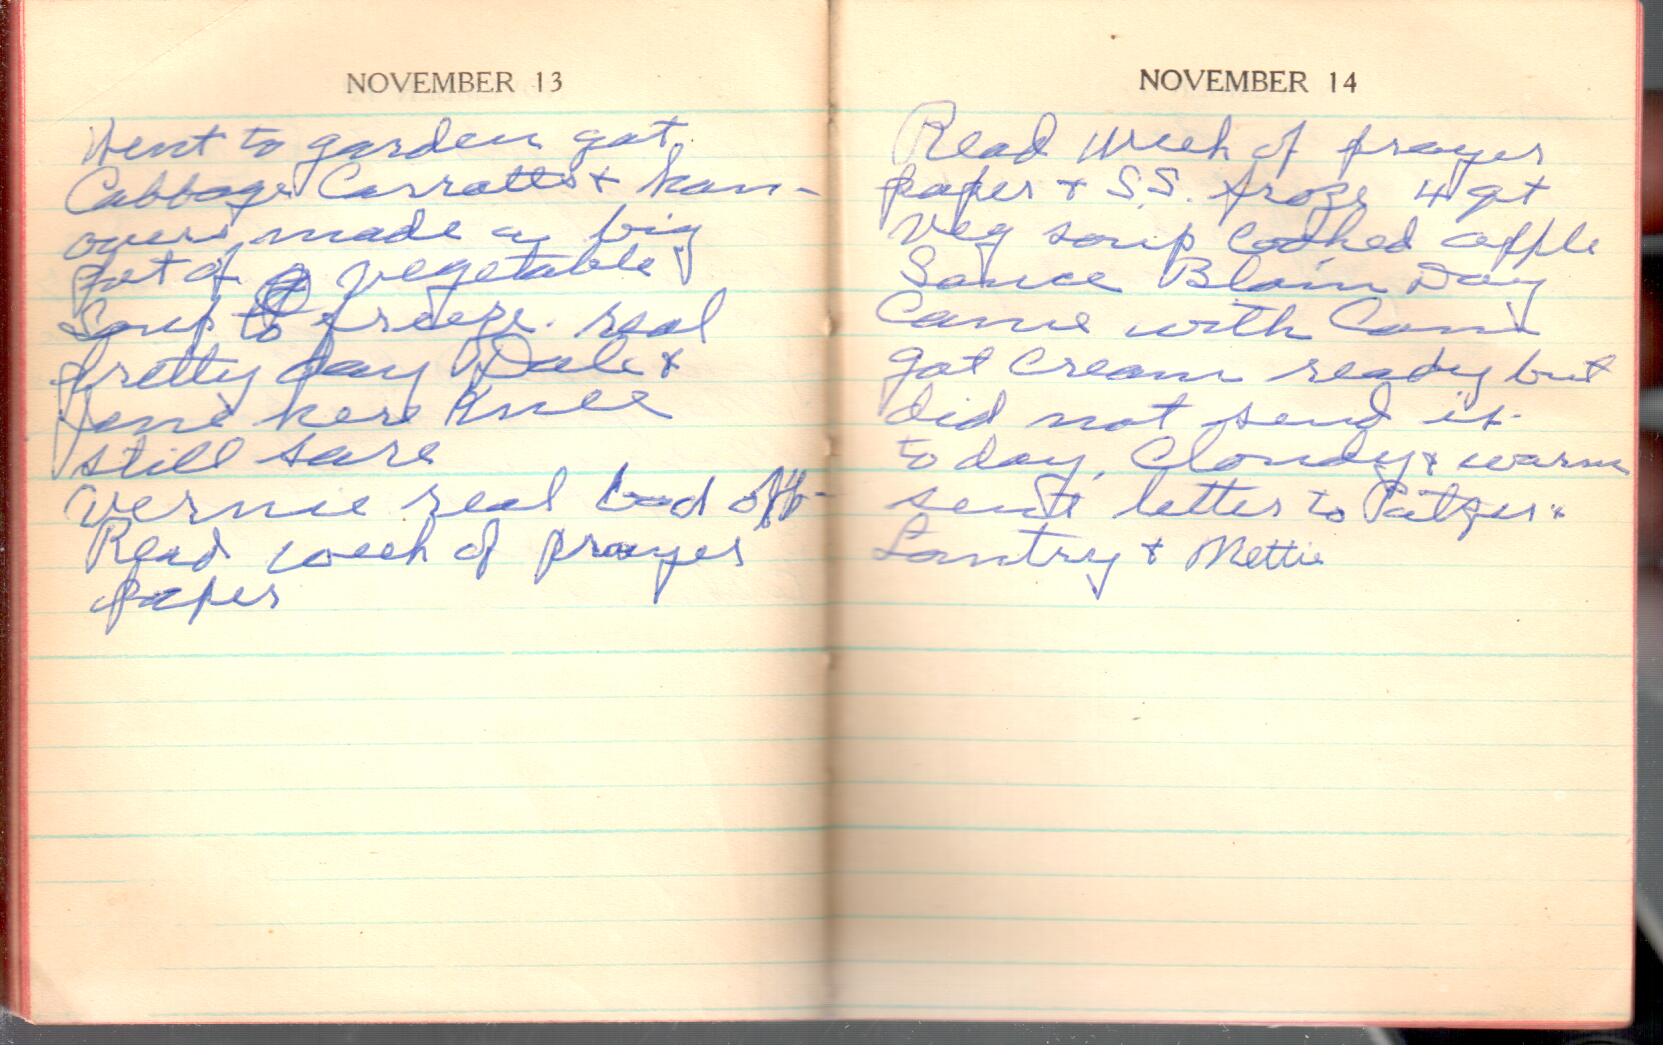 NOVEMBER 13
Went to garden got
Cabbage Carrotts + han-
overs made a big
pot of vegetable
Soup to freeze. real
pretty day Dale +
Jane here Knee
still sore
Vernie real bad off-
Read week of prayer
paper
NOVEMBER 14
Read week of prayer
paper + S.S. froze 4 qt
Veg soup cooked apple
Sauce Blain Day
Came with Corn
got cream ready but
did not send it
to day, Cloudy + warm
sent letter to +
Lantry + Mettie